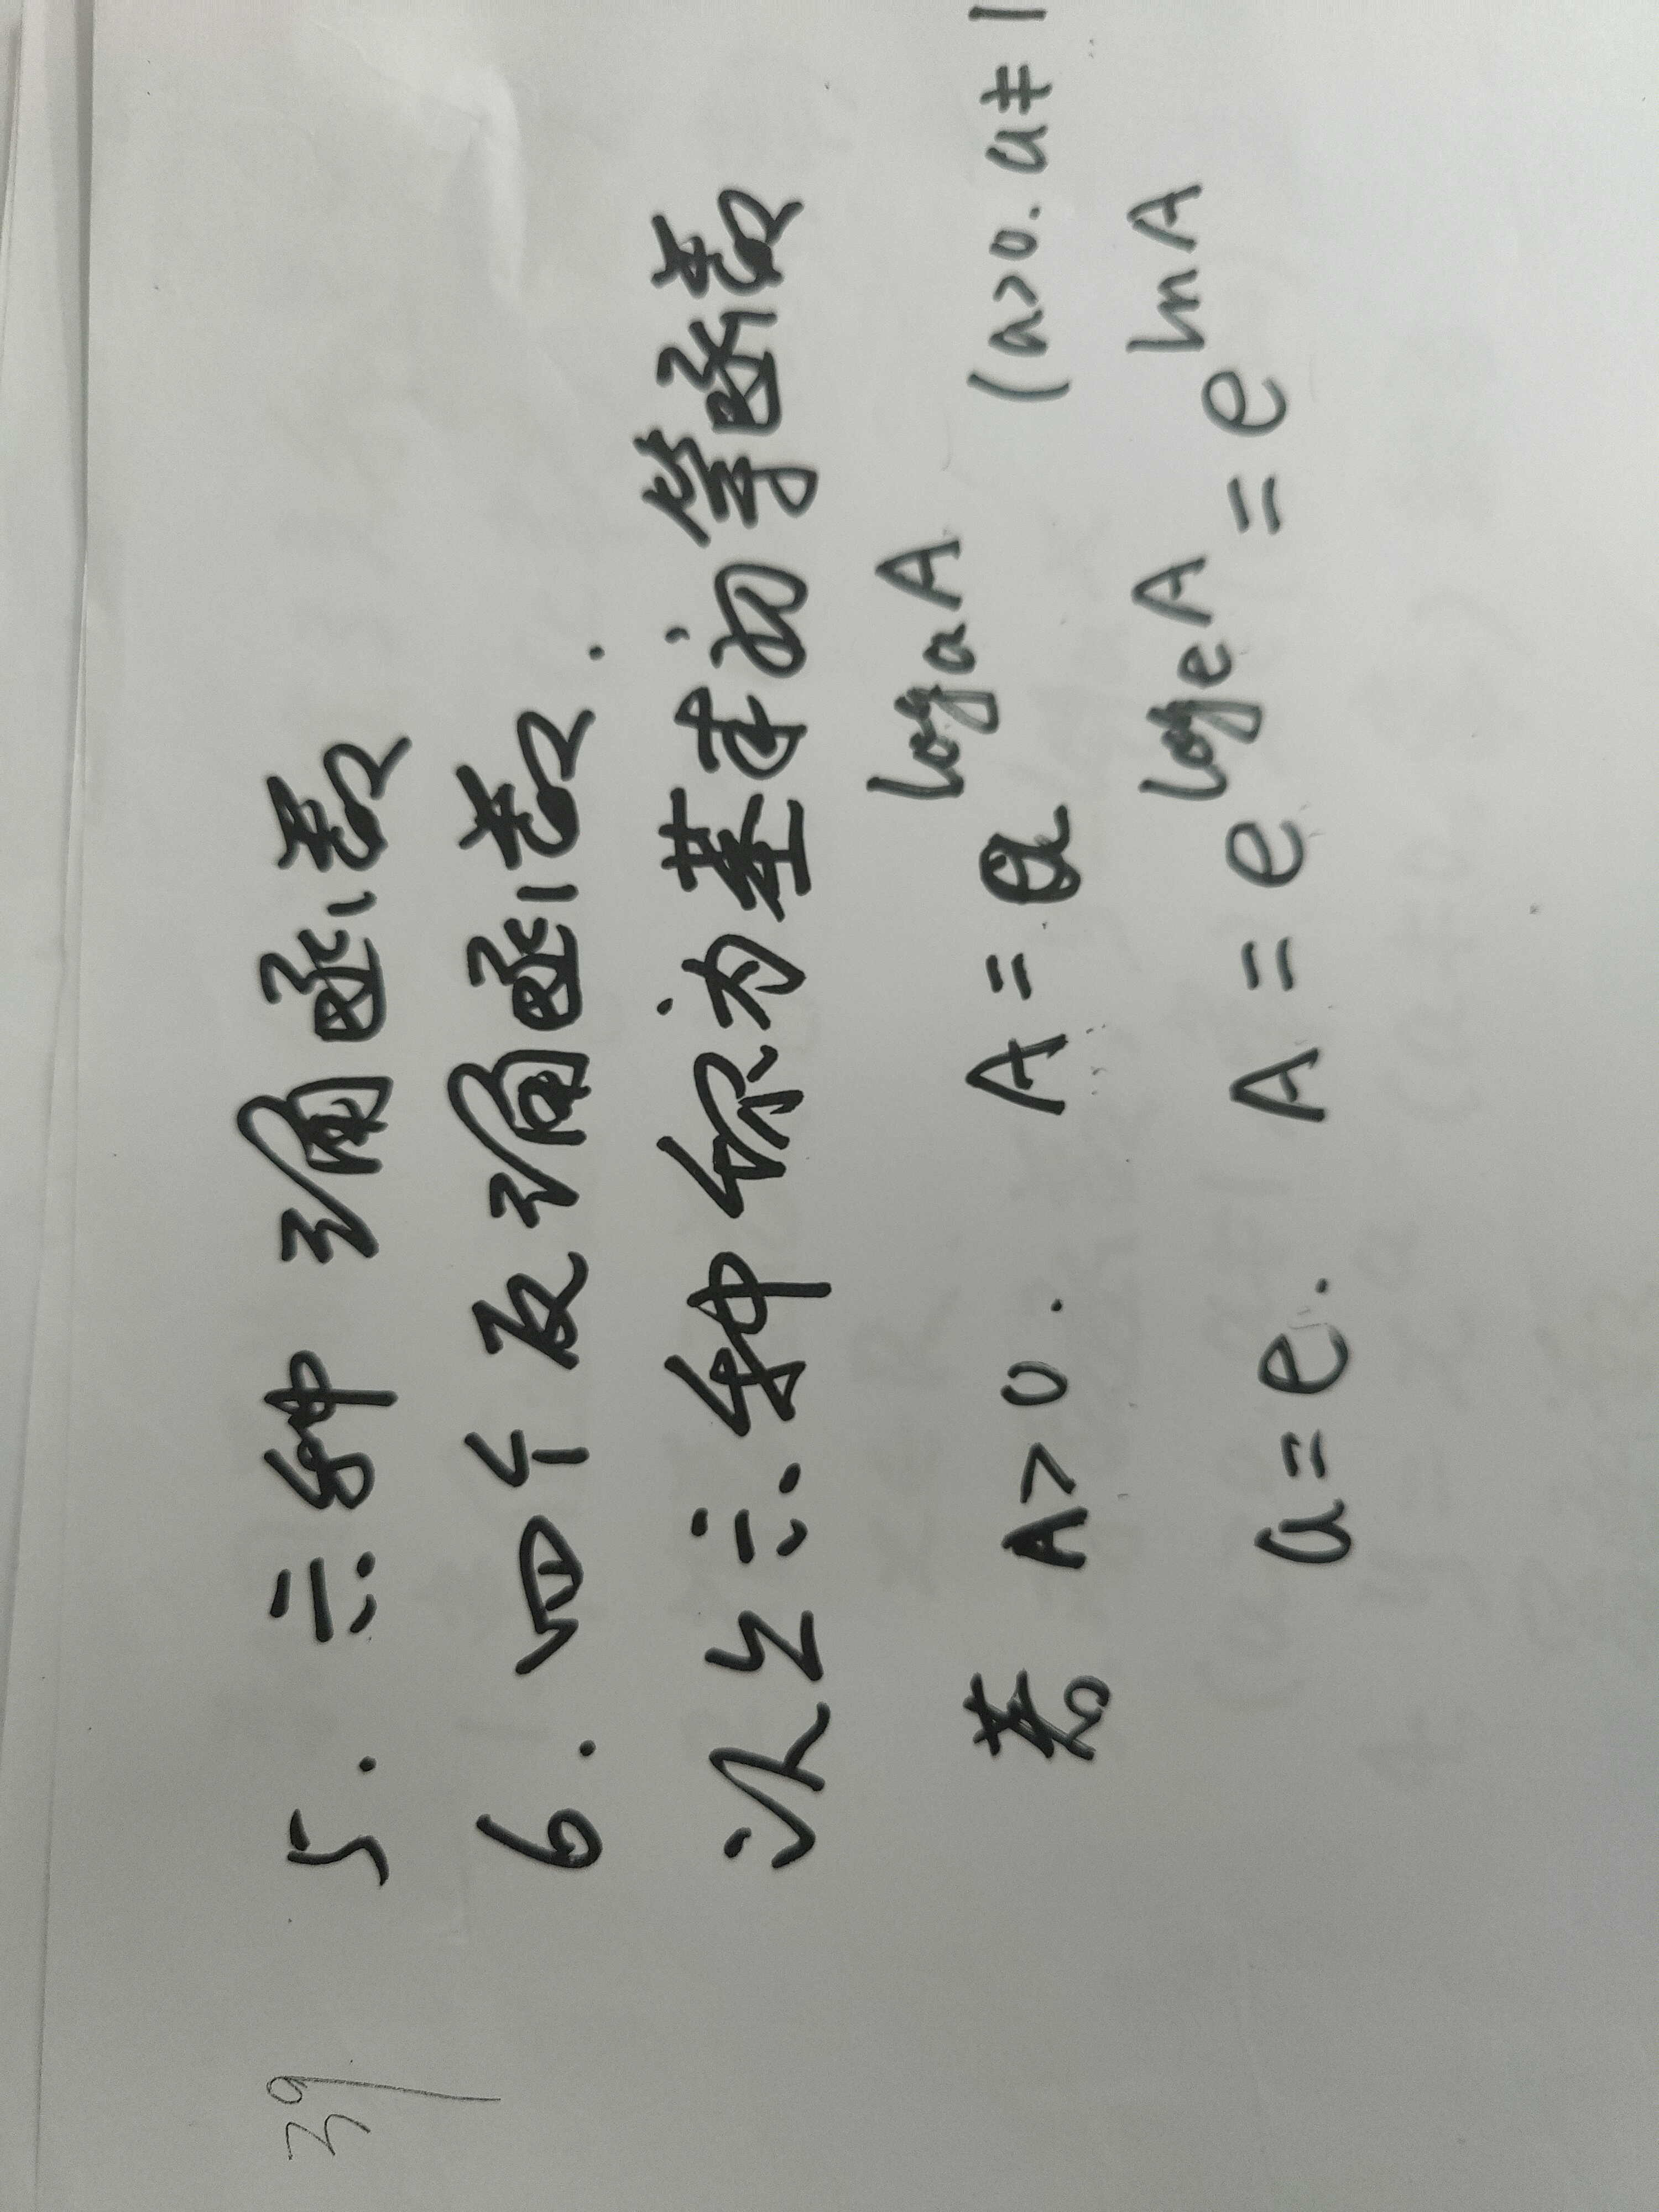 39
5. 六种三角函数
6. 四个反三角函数.
以上六种称为基本初等函数
若 A>0. A = a^{log_a A} (a>0. a≠1
a=e. A = e^{log_e A} = e^{ln A}